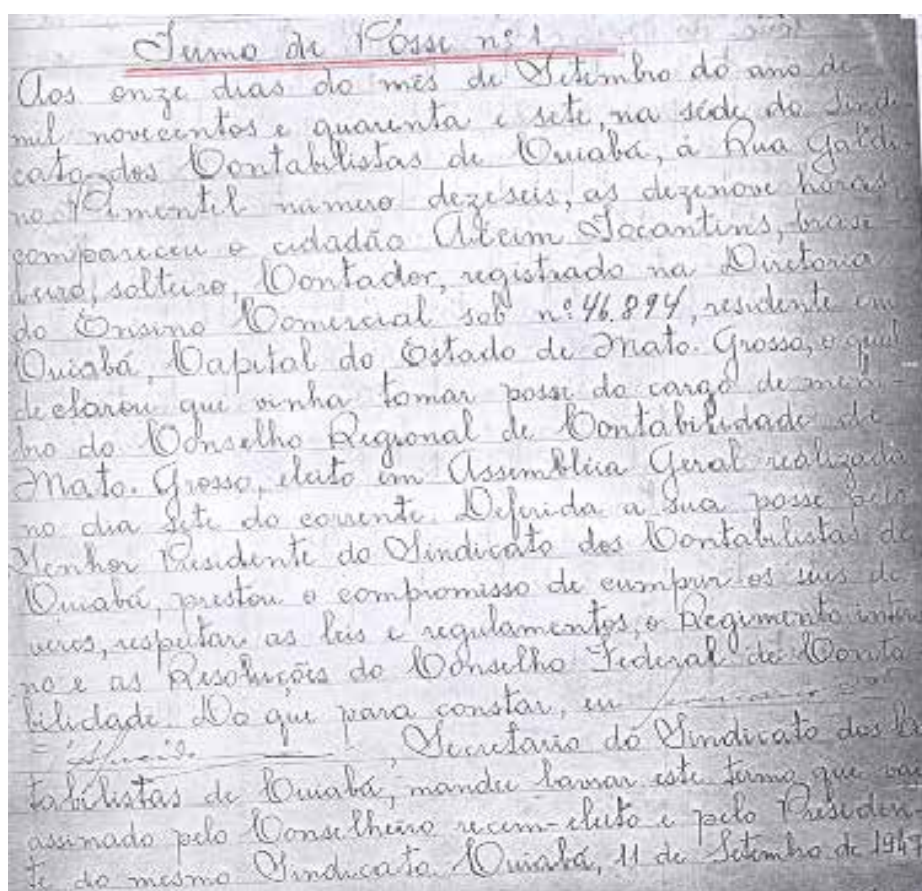 Termo de Pósse nº 1
Aos onze dias do mês de Setembro do ano de
mil novecentos e quarenta e sete, na séde do Sindi-
cato dos Contabilistas de Cuiabá, á Rua Galdi-
no Pimentel numero dezeseis, as dezenove horas,
compareceu o cidadão Alcim Tocantins, brasi-
leiro, solteiro, Contador, registrado na Diretoria
do Ensino Comercial sob nº 46.894, residente em
Cuiabá, Capital do Estado de Mato-Grosso, o qual
declarou que vinha tomar posse do cargo de mem-
bro do Conselho Regional de Contabilidade de
Mato-Grosso, eleito em Assembléia Geral realizada
no dia sete do corrente. Deferida a sua posse pelo
Senhor Presidente do Sindicato dos Contabilistas de
Cuiabá, prestou o compromisso de cumprir os seus de-
veres, respeitar as leis e regulamentos, o Regimento inter-
no e as Resoluções do Conselho Federal de Conta-
bilidade. Do que para constar, eu
, Secretario do Sindicato dos Con
tabilistas de Cuiabá, mandei lavrar este termo que vai
assinado pelo Conselheiro recem-eleito e pelo Presiden-
te do mesmo Sindicato. Cuiabá, 11 de Setembro de 1947